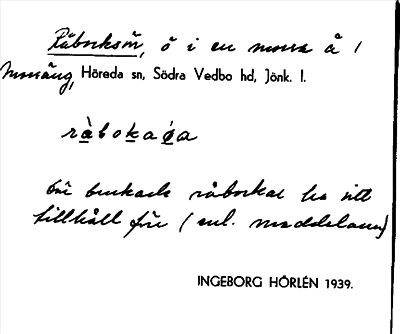 Råbocksön, ö i en mosse å /
Mossäng, Höreda sn, Södra Vedbo hd, Jönk. l.
råbokaöa
där brukade råbockar ha sitt
tillhåll förr (enl. meddelaren)
INGEBORG HÖRLÉN 1939.